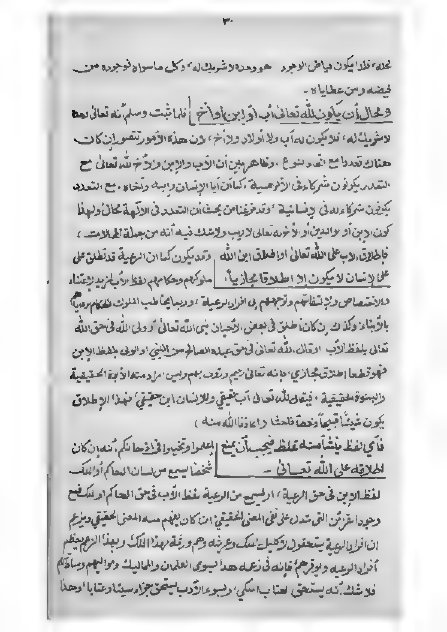 ٣٠
محله، فلذا يكون فياض الوجود هو وحده لا شريك له، وكل ما سواه فوجوده من
فيضه ومن عطاياه.
ومحال أن يكون لله تعالى أب أو ابن أو أخ فلما ثبت وسلم أنه تعالى
لا شريك له، فلا يكون له أب ولا أولاد ولا أخ، لأن هذه الأمور تتصور إن كان
هناك تعدد مع اتحاد نوع، وظاهر بين أن الأب والابن والأخ لله تعالى مع
التعدد يكونون شركاء في الألوهية، كما أن أبا الإنسان وابنه وأخاه، مع التعدد
يكونون شركاء له في الإنسانية، وقد فرغنا من بحث أن التعدد في الآلهة محال ولهذا
كون الابن أو الوالدين أو الأخ له تعالى لا ريب ولا شك فيه أنه من جملة المحالات،
فإطلاق الأب على الله تعالى أو إطلاق ابن الله وقد يكون كما أن الرعية قد تطلق على
على الإنسان لا يكون إلا إطلاقا مجازيا. ملوكهم وحكامهم لفظ الأب لمزيد الاعتناء
والاختصاص والالتفات إلى أفراد الرعية، وربما يخاطب الملوك والحكام
بالأبناء وكذلك إن كان أطلق في بعض الأحيان بنبي الله تعالى أو ولي الله في حق الله
تعالى بلفظ الأب أو قال الله تعالى في حق عبده الصالح من النبي أو الولي بلفظ الابن
فهو قطعا إطلاق مجازي، فإنه تعالى رحيم ورؤف بهم وليس مراد منه الأبوة الحقيقية
والبنوة الحقيقية، فيقال لله تعالى أب حقيقي وللإنسان ابن حقيقي، فهذا الإطلاق
يكون شيئا قبيحا وقحة فاحشا، أعاذنا الله منه،
فأي لفظ ينشأ منه غلط فيجب أن يمنع اعلموا وتخيلوا في أذهانكم، أنه إن كان
إطلاقه على الله تعالى. شخصا يسمع من لسان الحاكم أو الملك
لفظ الابن في حق الرعية، أو يسمع من الرعية لفظ الأب في حق الحاكم أو الملك مع
وجود القرائن التي تدل على نفي المعنى الحقيقي، إن كان يفهم منه المعنى الحقيقي ويزعم
أن أفراد الرعية يستحقون لإكليل الملك وعرشه وهم ورثة لهذا الملك وبهذا الزعم يعظم
أفراد الرعية ويوقرهم، فإنه في زعمه هذا يسوي الغلمان والمماليك ومواليهم
فلا شك أنه يستحق لعتاب الملكي، ولسوء الأدب يستحق جزاء سيئا وعقابا، وهذا